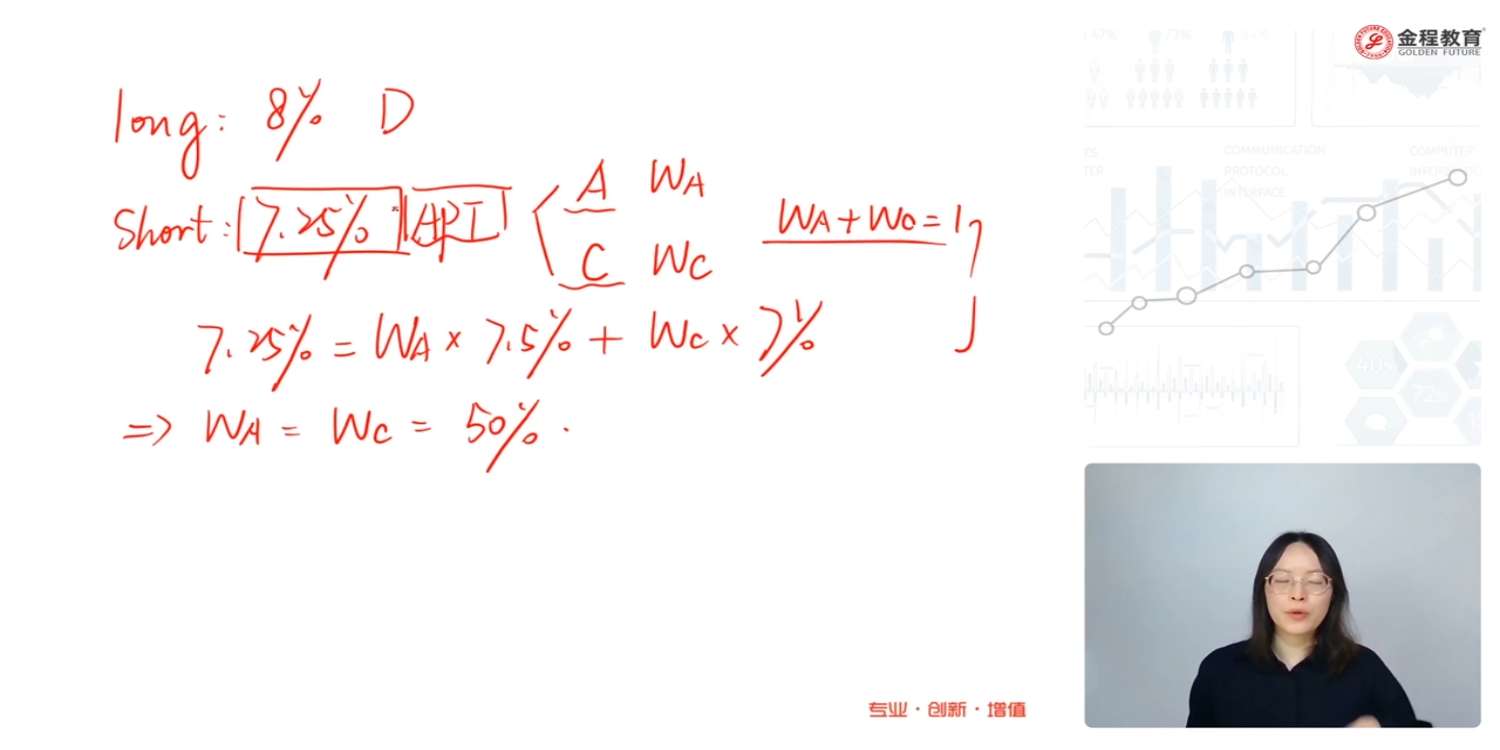 long: 8% D
Short: 7.25% APT
A WA
C WC
WA + WC = 1
7.25% = WA × 7.5% + WC × 7%
=> WA = WC = 50%.
金程教育
GOLDEN FUTURE
COMMUNICATION
PROTOCOL
INTERFACE
COMPUTER
专业·创新·增值